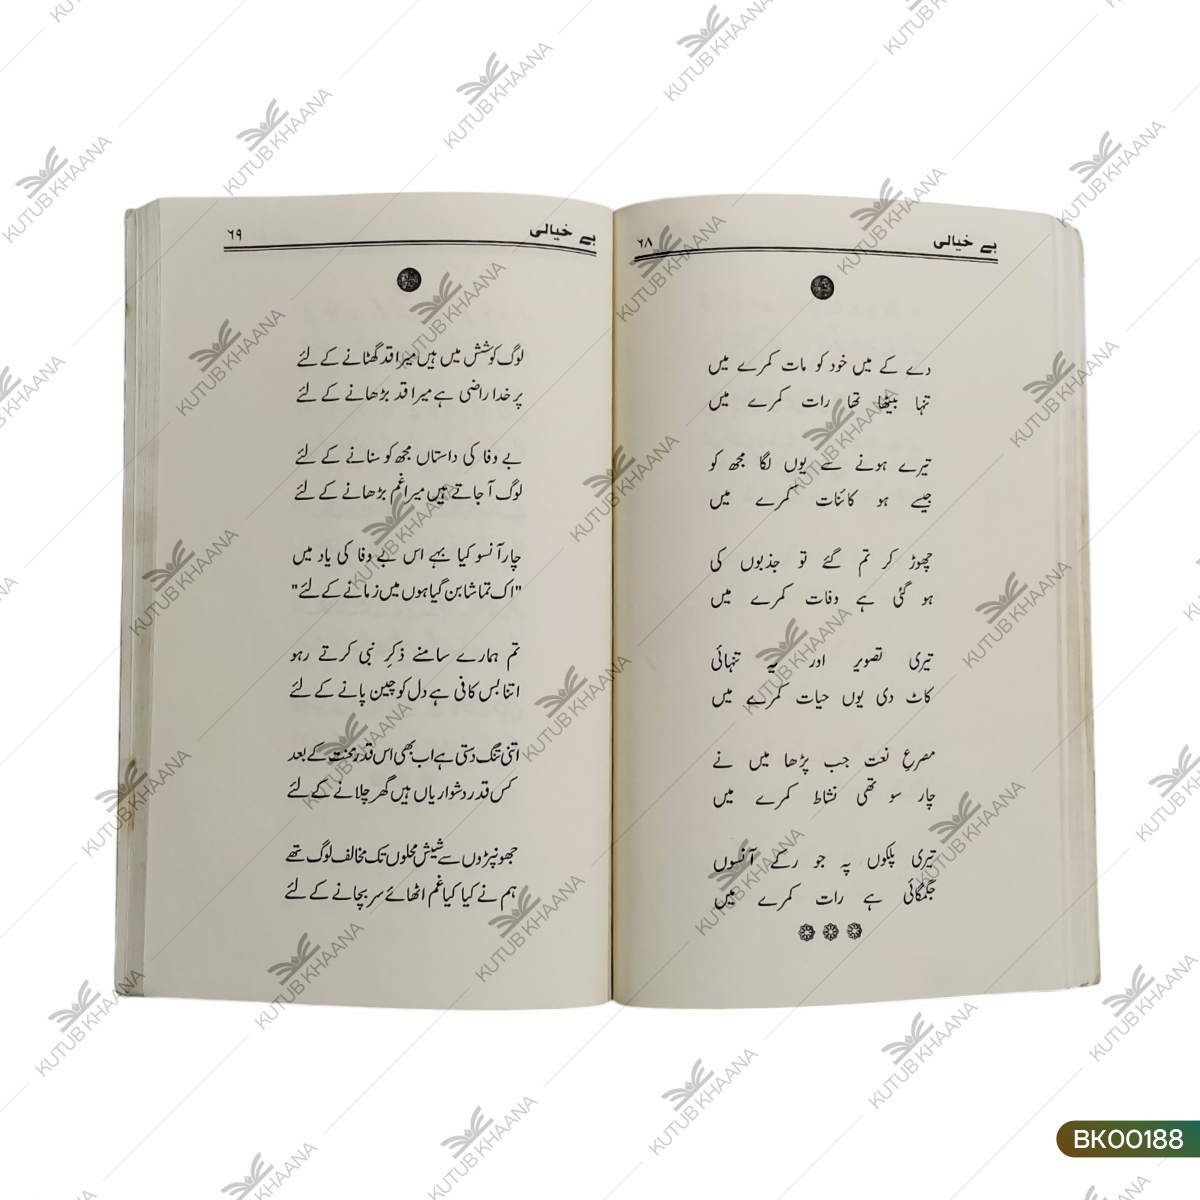 بے خیالی
۶۸
دے کے میں خود کو مات کمرے میں
تنہا بیٹھا تھا رات کمرے میں
تیرے ہونے سے یوں لگا مجھ کو
جیسے ہو کائنات کمرے میں
چھوڑ کر تم گئے تو جذبوں کی
ہو گئی ہے وفات کمرے میں
تیری تصویر اور یہ تنہائی
کاٹ دی یوں حیات کمرے میں
مصرعِ نعت جب پڑھا میں نے
چار سو تھی نشاط کمرے میں
تیری پلکوں پہ جو رکے آنسوں
جگمگائی ہے رات کمرے میں
بے خیالی
۶۹
لوگ کوشش میں ہیں میرا قد گھٹانے کے لئے
پر خدا راضی ہے میرا قد بڑھانے کے لئے
بے وفا کی داستاں مجھ کو سنانے کے لئے
لوگ آ جاتے ہیں میرا غم بڑھانے کے لئے
چار آنسو کیا بہے اس بے وفا کی یاد میں
"اک تماشا بن گیا ہوں میں زمانے کے لئے"
تم ہمارے سامنے ذکرِ نبی کرتے رہو
اتنا بس کافی ہے دل کو چین پانے کے لئے
اتنی تنگ دستی ہے اب بھی اس قدر محنت کے بعد
کس قدر دشواریاں ہیں گھر چلانے کے لئے
جھونپڑوں سے شیش محلوں تک مخالف لوگ تھے
ہم نے کیا کیا غم اٹھائے سر بچانے کے لئے
KUTUB KHAANA
BK00188